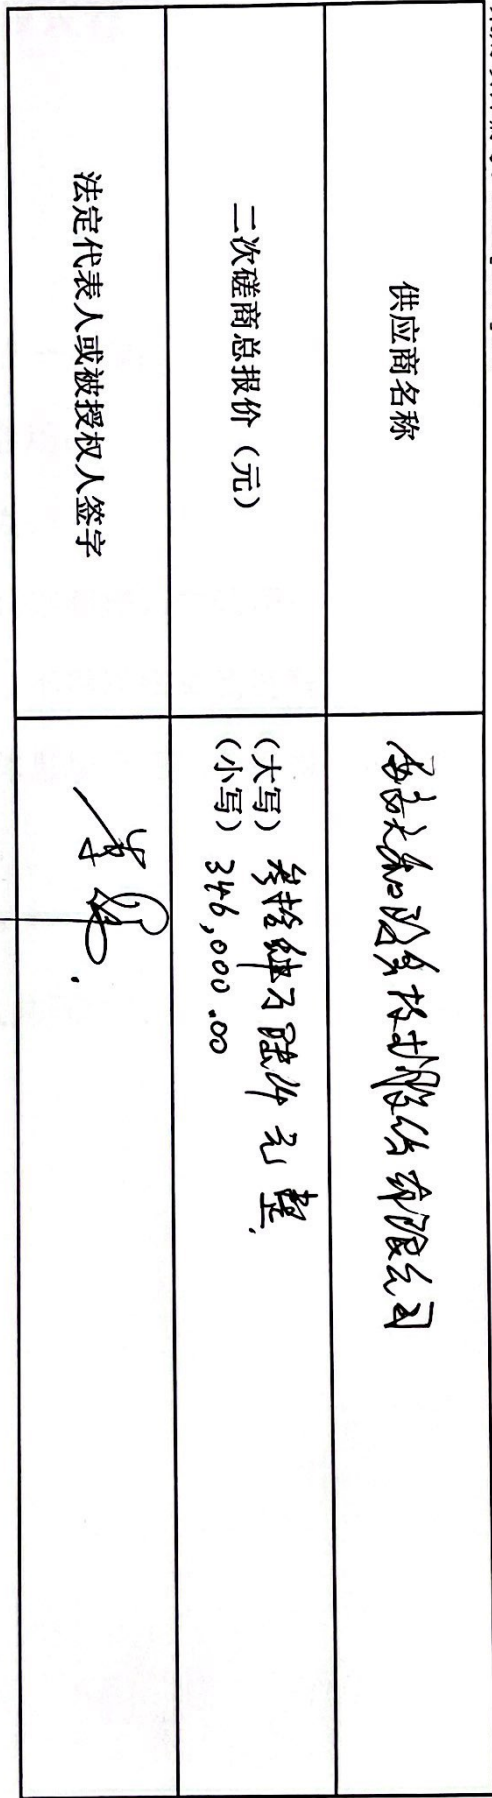 供应商名称
股份有限公司
二次磋商总报价（元）
（大写）叁拾肆万陆仟元整
（小写）346,000.00
法定代表人或被授权人签字